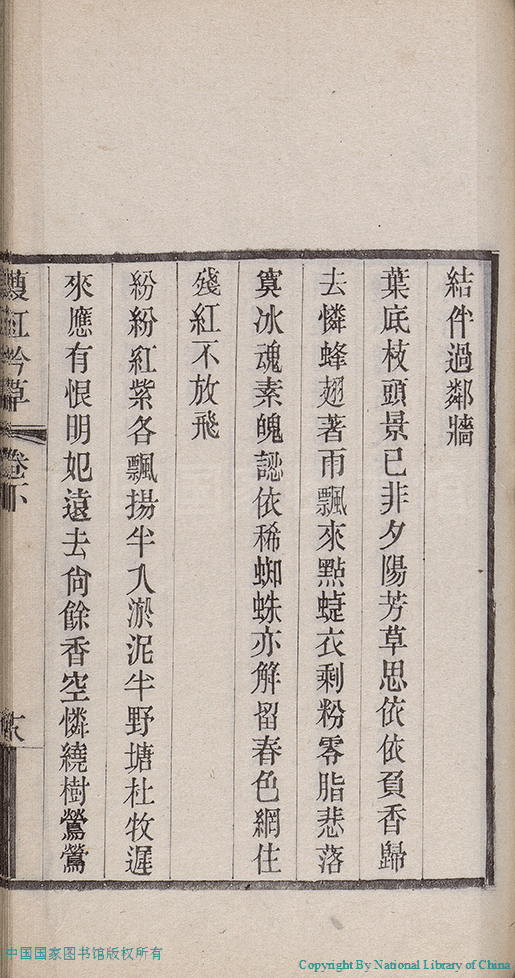 結伴過鄰牆
葉底枝頭景已非夕陽芳草思依依負香歸
去憐蜂翅著雨飄來點蜨衣剩粉零脂悲落
寞冰魂素魄認依稀蜘蛛亦解留春色網住
殘紅不放飛
紛紛紅紫各飄揚半入淤泥半野塘杜牧遲
來應有恨明妃遠去尙餘香空憐繞樹鶯鶯
紅吟草
卷下
中国国家图书馆版权所有
Copyright By National Library of China